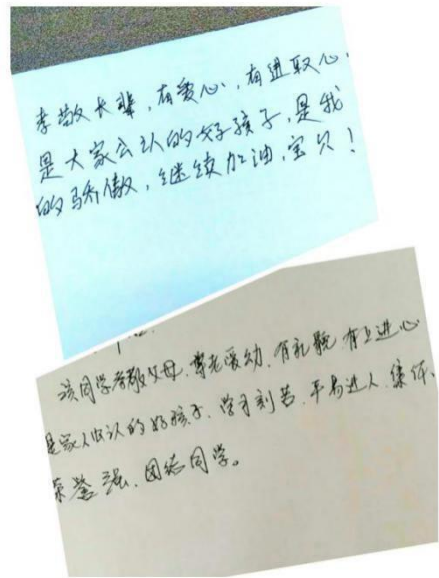 孝敬长辈，有爱心，有进取心，
是大家公认的好孩子，是我
的骄傲，继续加油，宝贝！
该同学孝敬父母，尊老爱幼，有礼貌，有上进心
是家人公认的好孩子，学习刻苦，平易近人，集体
荣誉强，团结同学。